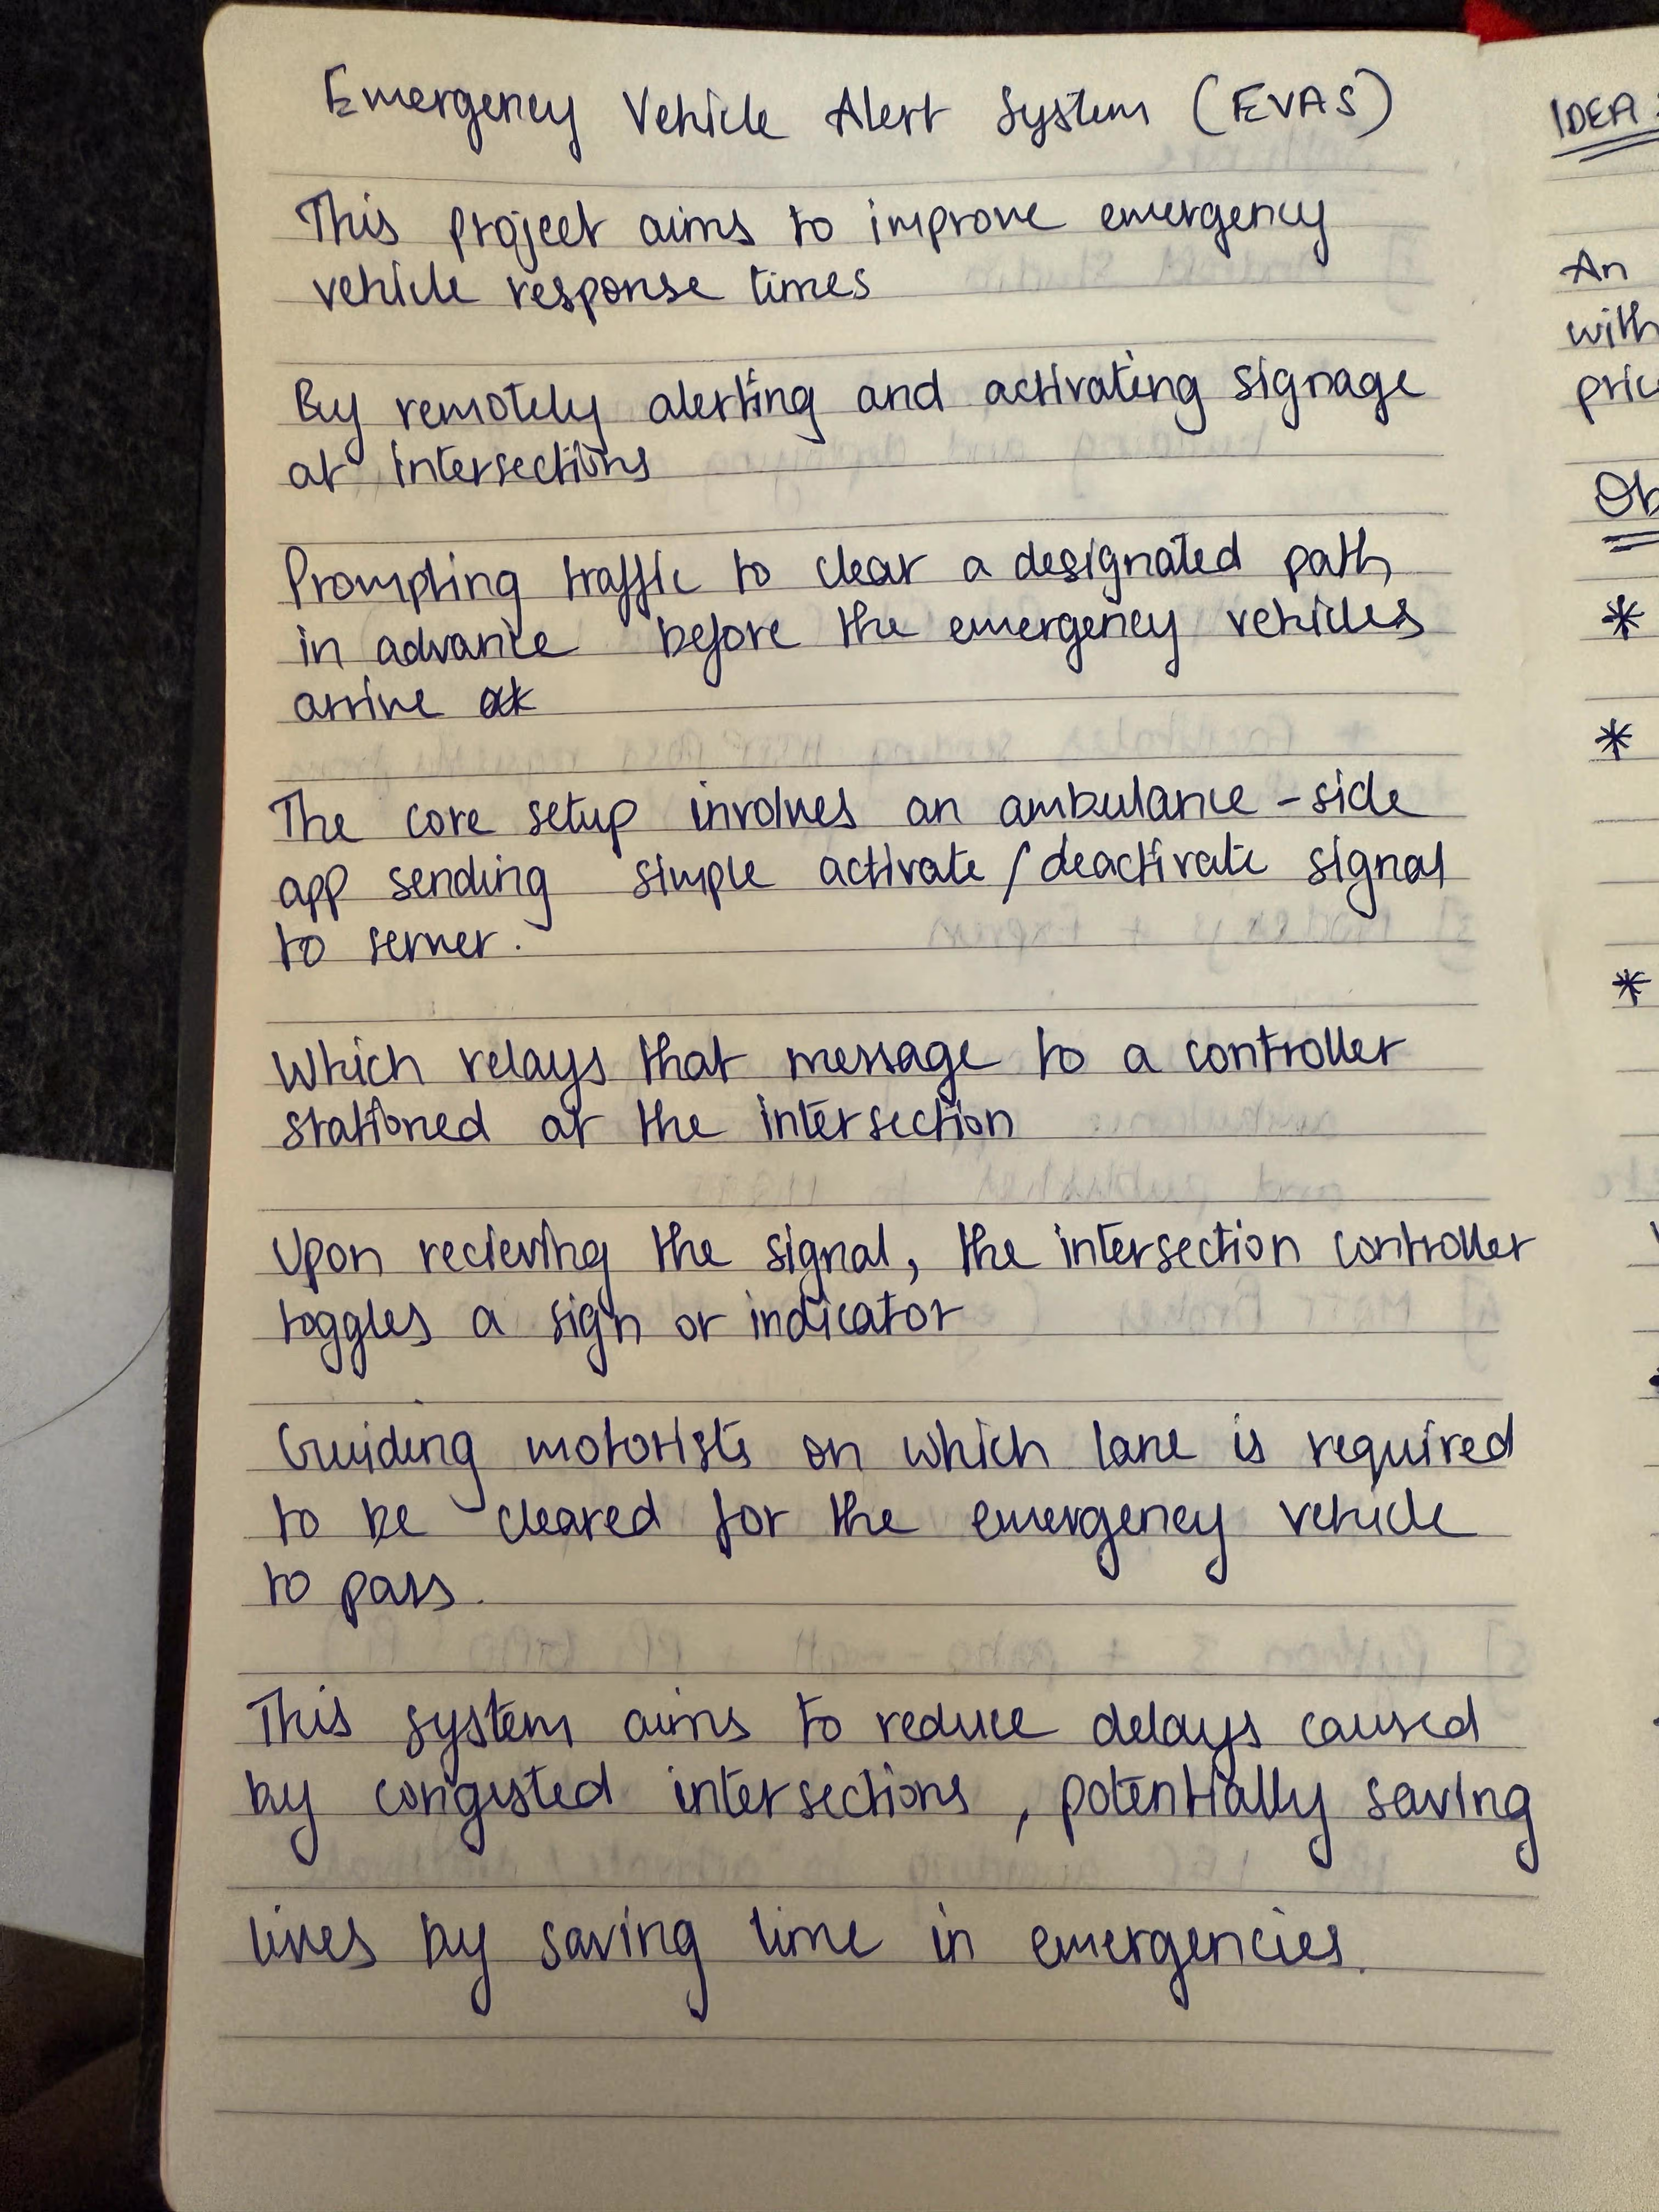 Emergency Vehicle Alert System (EVAS)
This project aims to improve emergency
vehicle response times
By remotely alerting and activating signage
at intersections
Prompting traffic to clear a designated path
in advance before the emergency vehicles
arrive
The core setup involves an ambulance-side
app sending simple activate/deactivate signal
to server.
Which relays that message to a controller
stationed at the intersection
Upon recieving the signal, the intersection controller
toggles a sign or indicator
Guiding motorists on which lane is required
to be cleared for the emergency vehicle
to pass.
This system aims to reduce delays caused
by congested intersections, potentially saving
lives by saving time in emergencies.
IDEA:
An
with
*
*
*